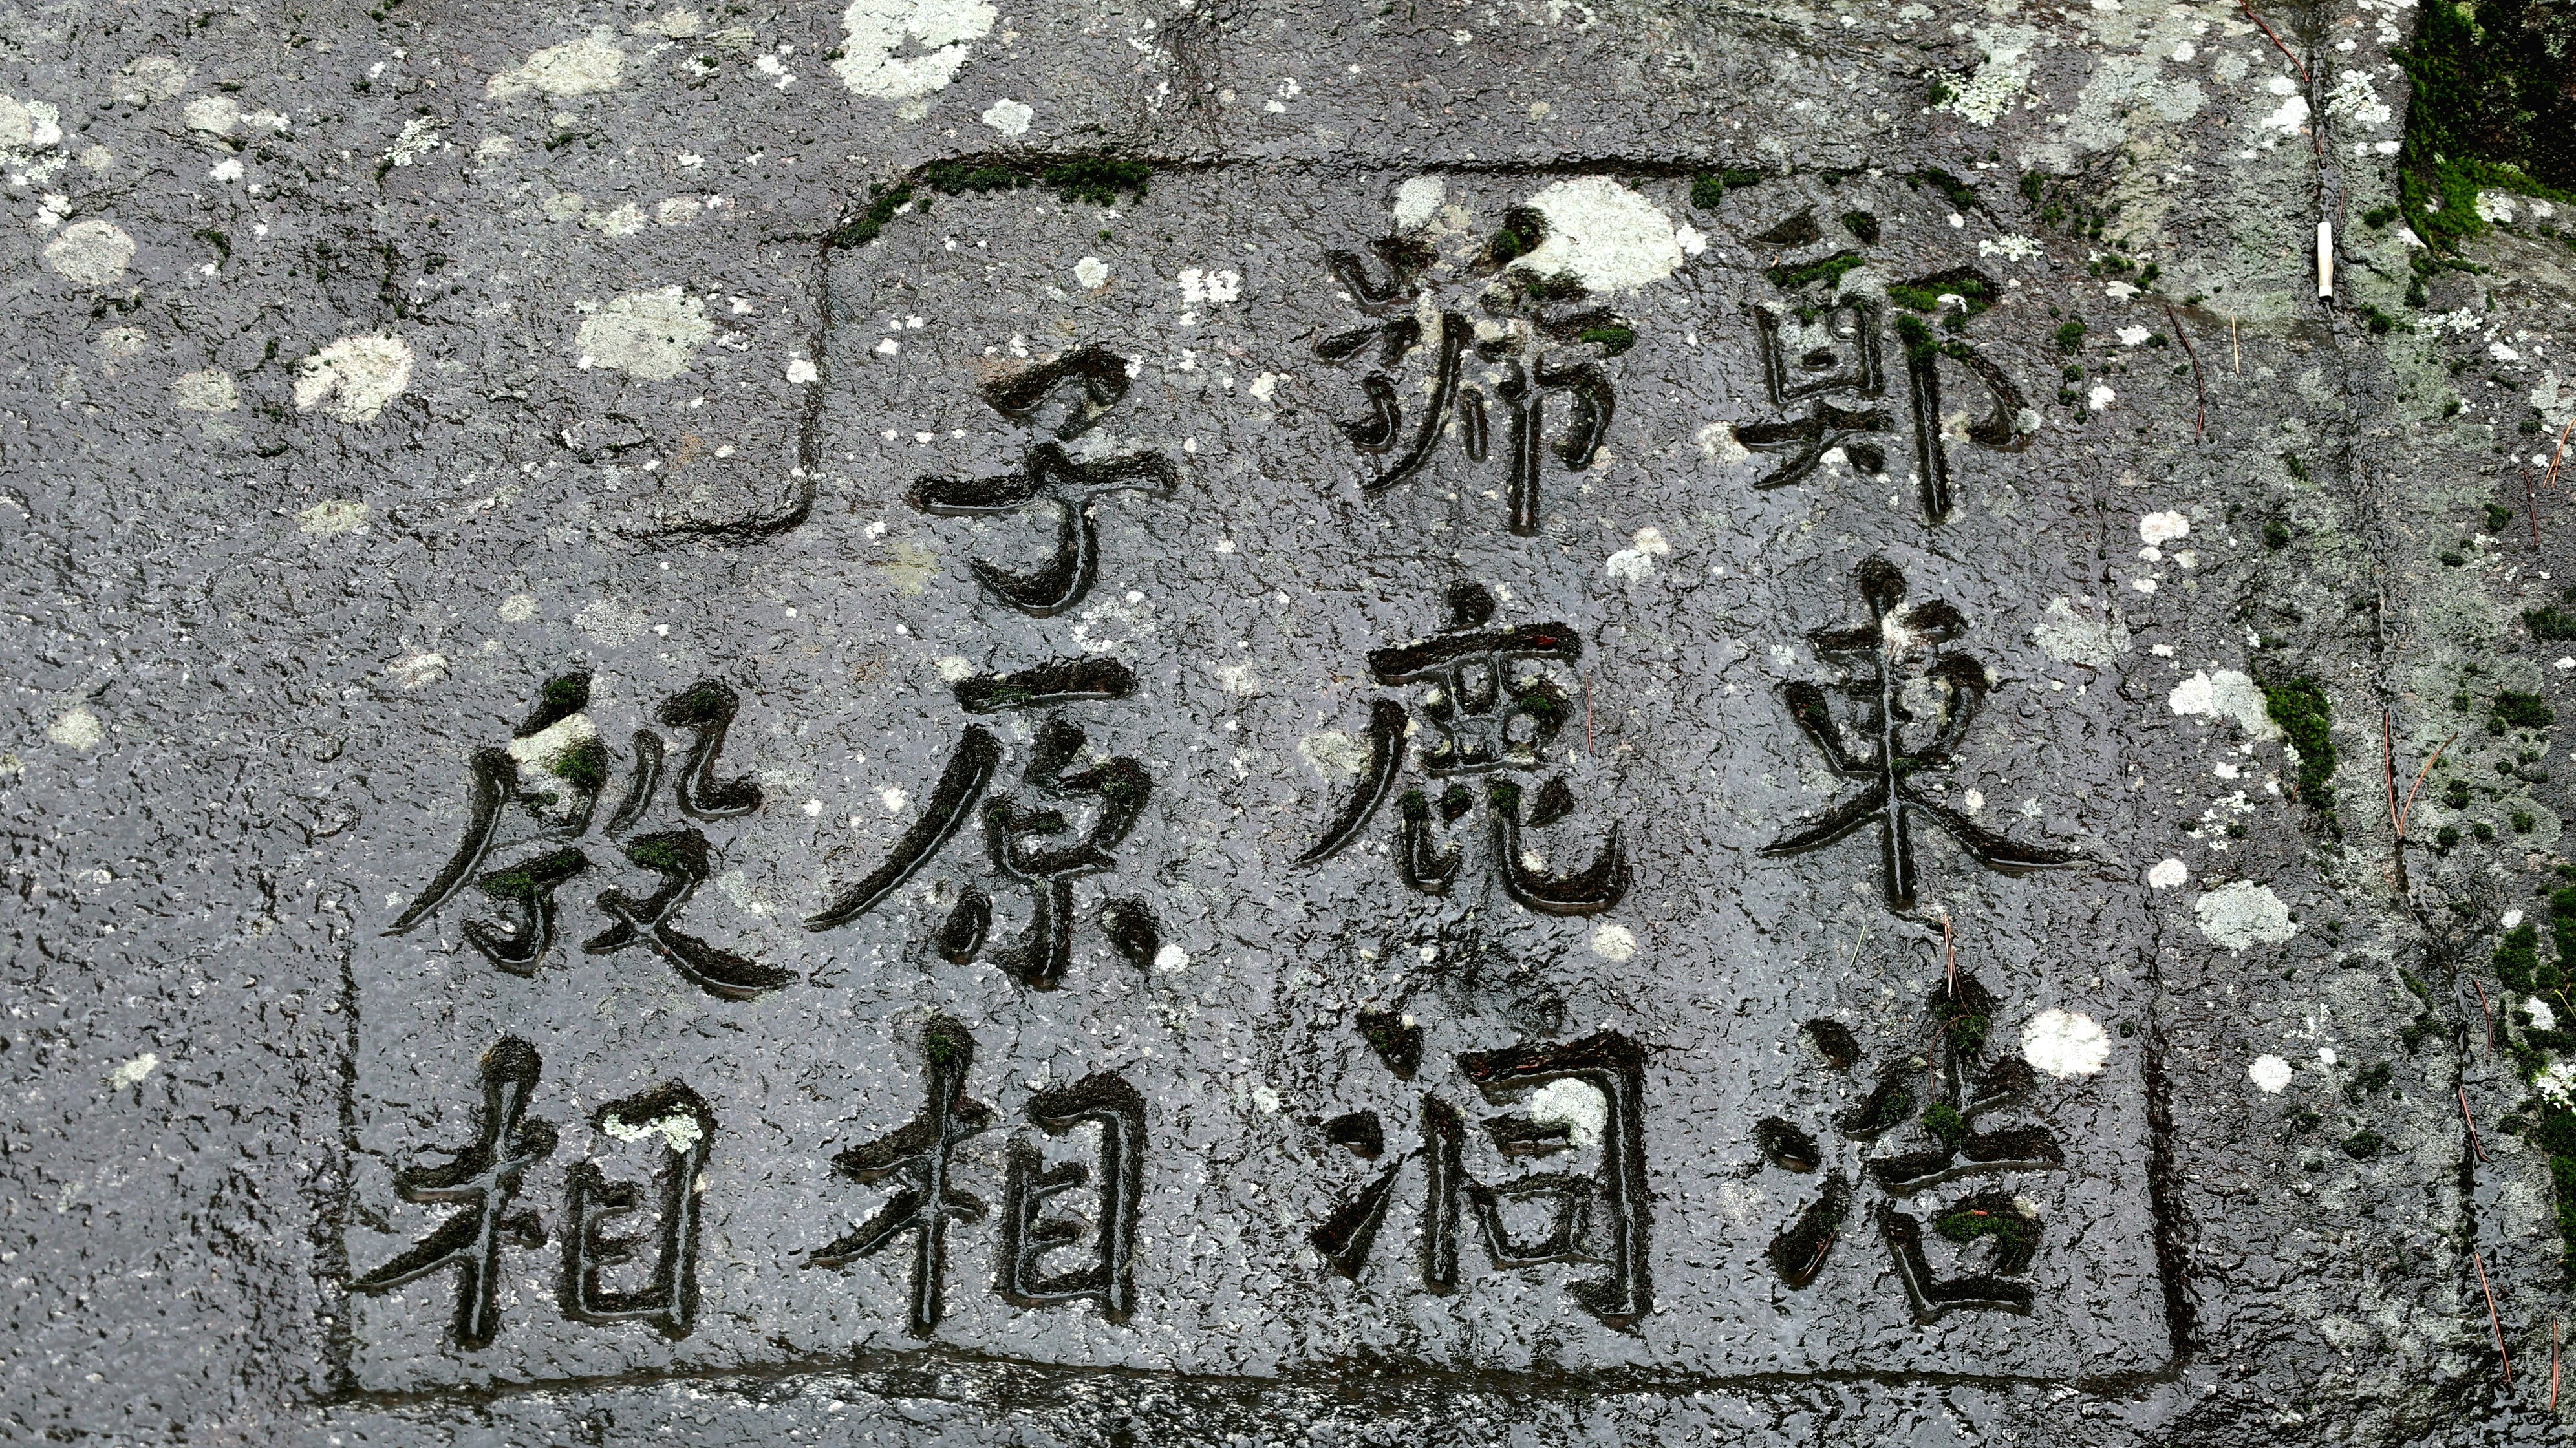 鄭東浩
號鹿洞
子原相
殷相